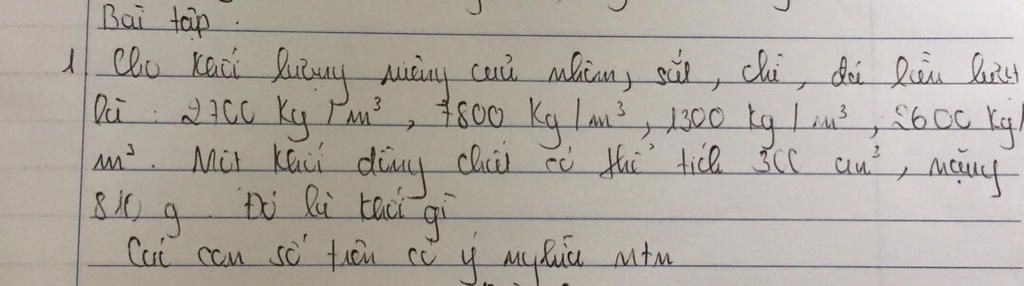 Bài tập.
1 Cho khối lượng riêng của nhôm, sắt, chì, đá lần lượt
là : 2700 Kg/m³, 7800 Kg/m³, 1300 kg/m³, 2600 Kg/
m³. Một khối đồng chất có thể tích 300 cm³, nặng
810 g. Đó là khối gì
Các con số trên có ý nghĩa ntn